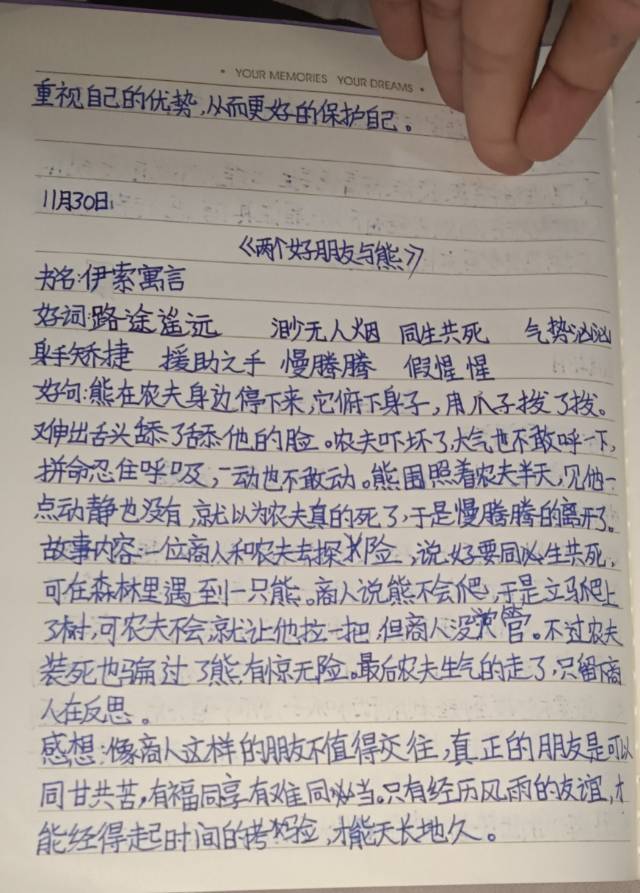 • YOUR MEMORIES YOUR DREAMS •
重视自己的优势,从而更好的保护自己。
11月30日:
《两个好朋友与熊》
书名:伊索寓言
好词:路途遥远 渺无人烟 同生共死 气势汹汹
身手矫捷 援助之手 慢腾腾 假惺惺
好句:熊在农夫身边停下来,它俯下身子,用爪子拨了拨。
又伸出舌头舔了舔他的脸。农夫吓坏了,大气也不敢呼一下,
拼命忍住呼吸,一动也不敢动。熊围照着农夫半天,见他一
点动静也没有,就以为农夫真的死了,于是慢腾腾的离开了。
故事内容:一位商人和农夫去探险,说好要同生共死,
可在森林里遇到一只熊。商人说熊不会爬,于是立马爬上
了树,可农夫不会,就让他拉一把,但商人没管。不过农夫
装死也骗过了熊,有惊无险。最后农夫生气的走了,只留下商
人在反思。
感想:像商人这样的朋友不值得交往,真正的朋友是可以
同甘共苦,有福同享有难同当。只有经历风雨的友谊,才
能经得起时间的考验,才能天长地久。